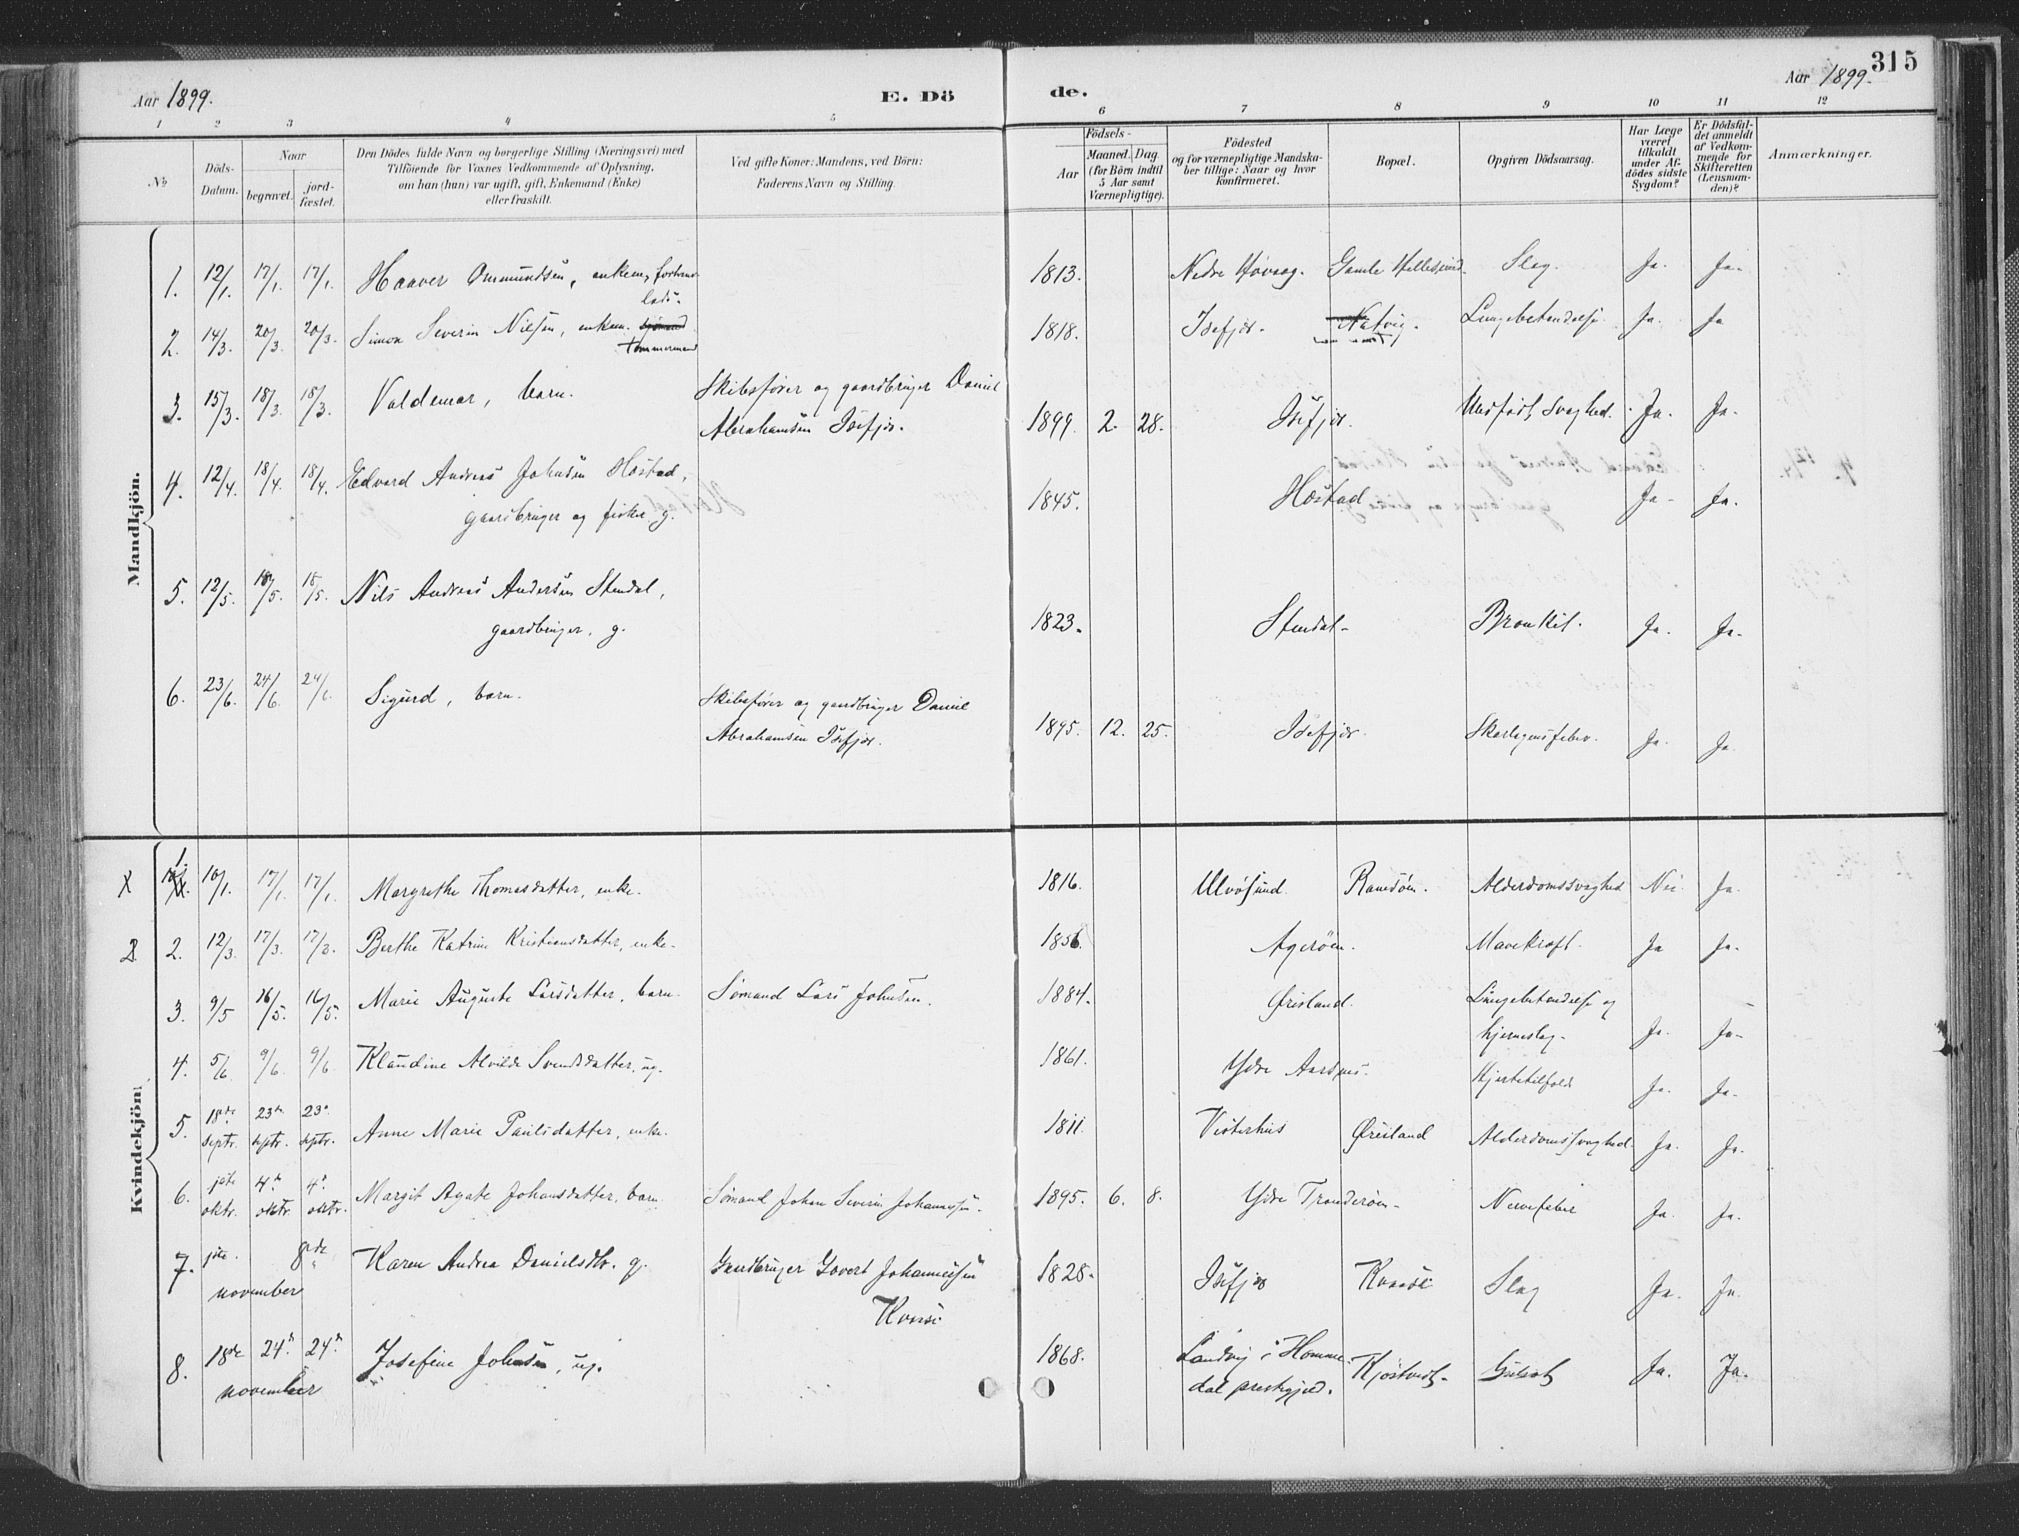 Aar 1899.
E. Dö
de.
Aar 1899.
315
1 2 3 4 5 6 7 8 9 10 11 12
No
Döds-
Datum.
Naar
begravet.
jord-
fæstet.
Den Dödes fulde Navn og borgerlige Stilling (Næringsvei) med
Tilföiende for Voxnes Vedkommende af Oplysning,
om han (hun) var ugift, gift, Enkemand (Enke)
eller fraskilt.
Ved gifte Koner: Mandens, ved Börn:
Faderens Navn og Stilling.
Födsels-
Aar
Maaned. Dag
(for Börn indtil
5 Aar samt
Værnepligtige).
Födested
og for værnepligtige Mandska-
ber tillige: Naar og hvor
konfirmeret.
Bopæl.
Opgiven Dödsaarsag.
Har Læge
været
tilkaldt
under Af-
dödes sidste
Sygdom?
Er Dödsfal-
det anmeldt
af Vedkom-
mende for
Skifteretten
(Lensman-
den)?
Anmærkninger.
Mandkjön.
1. 12/1. 17/1. 17/1. Haaver Ommundsen, enkem,
lods.
1813. Nedre Høvaag. Gamle Hellesund. Slag. Ja. Ja.
2. 14/3. 20/3. 20/3. Simon Severin Nilsen, enkem. sjømand
tømmermand
1818. Isefjær. Natvig. Lungebetændelse. Ja. Ja
3. 15/3. 18/3. 18/3. Valdemar, barn. Skibsfører og gaardbruger Daniel
Abrahamsen Isefjær.
1899. 2. 28. Isefjær. Medfødt Svaghed. Ja. Ja.
4. 12/4. 18/4. 18/4. Edvard Andreas Johnsen Høstad,
gaardbruger og fisker g.
1845. Høstad Ja. Ja.
5. 12/5. 18/5. 18/5. Nils Andreas Andersen Stendal,
gaardbruger, g.
1823. Stendal. Bronkit. Ja. Ja.
6. 23/6. 24/6. 24/6. Sigurd, barn. Skibsfører og gaardbruger Daniel
Abrahamsen Isefjær.
1895. 12. 25. Isefjær Skarlagensfeber. Ja. Ja.
Kvindekjön.
X 1. 10/1. 17/1. 17/1. Margrethe Thomasdatter, enke.
1816. Ulvøsund. Ramsøen. Alderdomssvaghed Nei Ja.
2. 12/3. 17/3. 17/3. Berthe Katrine Kristiansdatter, enke.
1856. Agerøen. Mavekræft. Ja Ja.
3. 9/5 16/5. 16/5. Marie Auguste Larsdatter, barn. Sømand Lars Johnsen.
1884. Øresland. Lungebetændelse og
hjerneslag. Ja. Ja.
4. 5/6. 9/6. 9/6. Klaudine Alvilde Svendsdatter, ug.
1861. Ydre Aarsnes. Hjertetilfælde Ja. Ja.
5. 18de septr. 23de septr. 23de septr. Anne Marie Paulsdatter, enke.
1811. Vesterhus Øresland Alderdomssvaghed. Ja. Ja.
6. oktr. 4de oktr. 4de oktr. Margit Agate Johansdatter, barn. Sømand Johan Severin Johannesen.
1895. 6. 8. Ydre Trønderøen. Nervefeber Ja. Ja.
7. 8de
november
Karen Andrea Danielsdtr. g. Gaardbruger Govert Johannessen
Kvaase
1828. Isefjær Kvaase Slag Ja. Ja.
8. 18de 24de 24de
november
Josefine Johnsen, ug.
1868. Landvig i Homme-
dal prestegjæld. Kjøstvedt. Gulsot Ja. Ja.